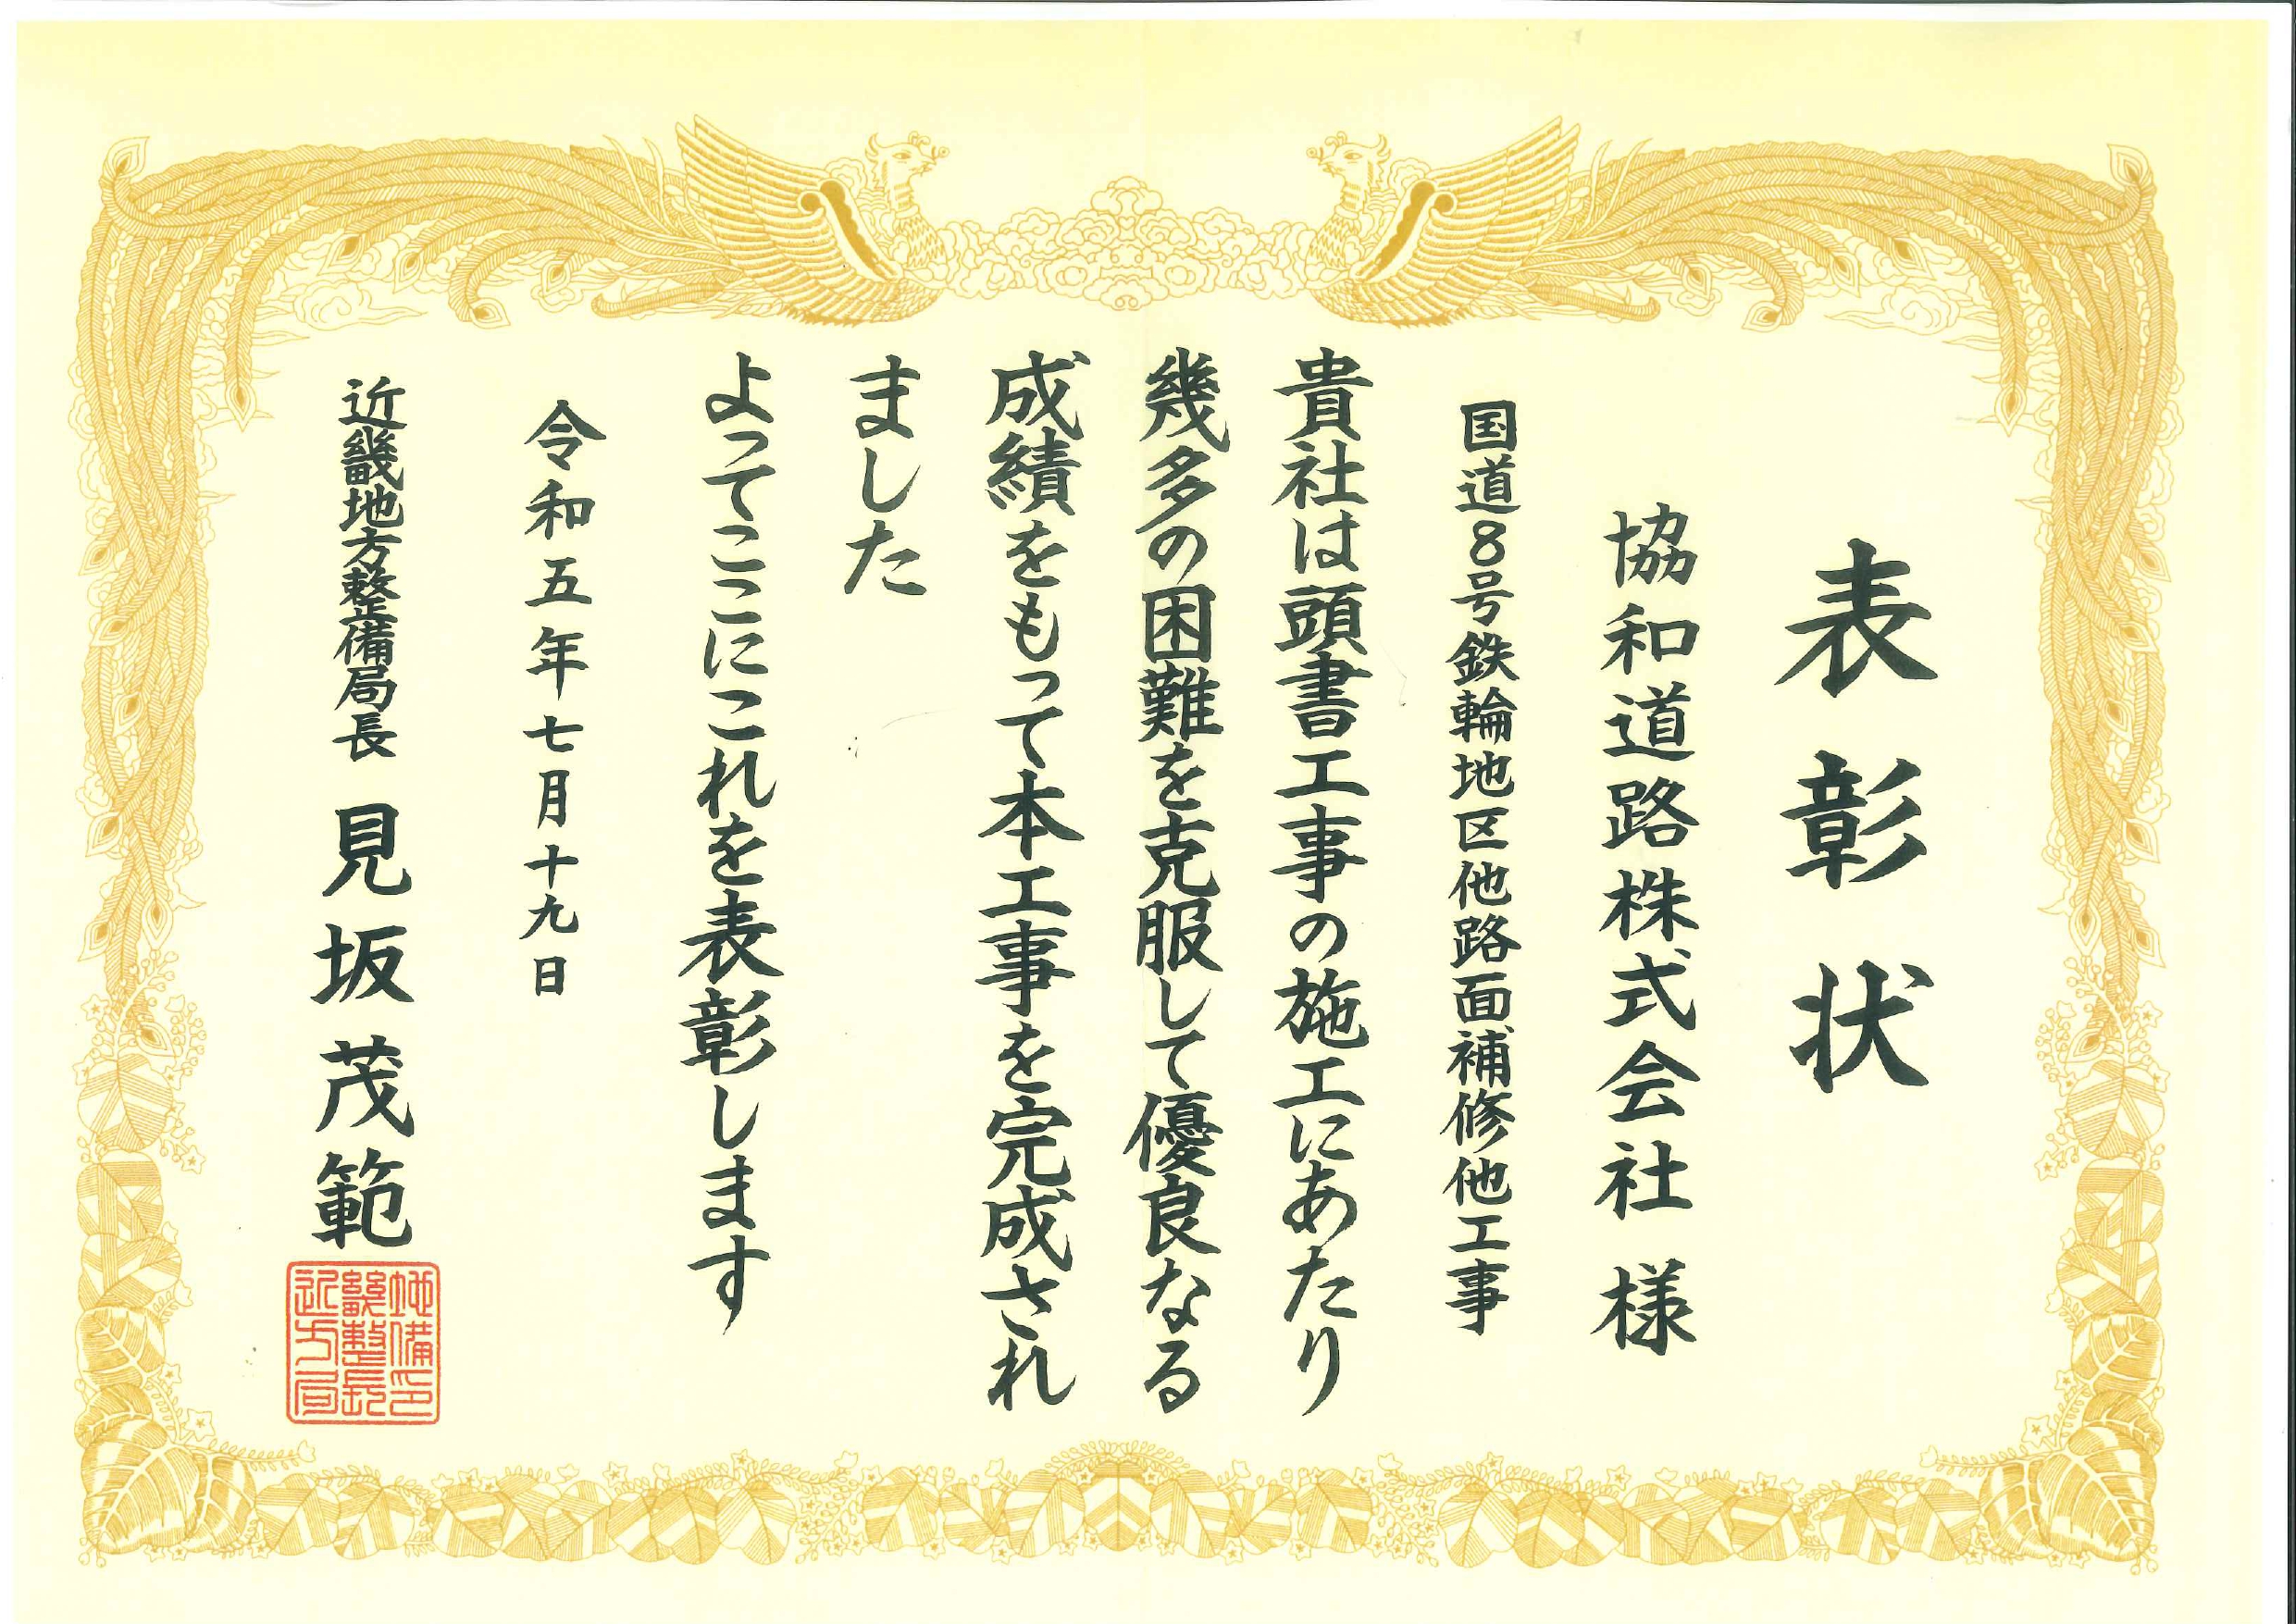 表彰状
協和道路株式会社 様
国道8号鉄輪地区他路面補修他工事
貴社は頭書工事の施工にあたり
幾多の困難を克服して優良なる
成績をもって本工事を完成され
ました
よってここにこれを表彰します
令和五年七月十九日
近畿地方整備局長 見坂茂範
近畿地
方整備
局長印